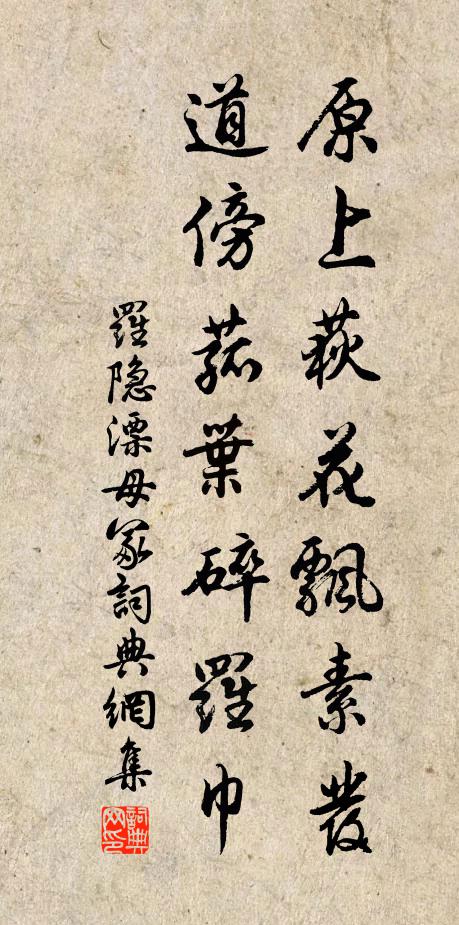 原上荻花飄素髮
道傍菰葉碎羅巾
羅隐漂母冢詞典網集
詞典网印